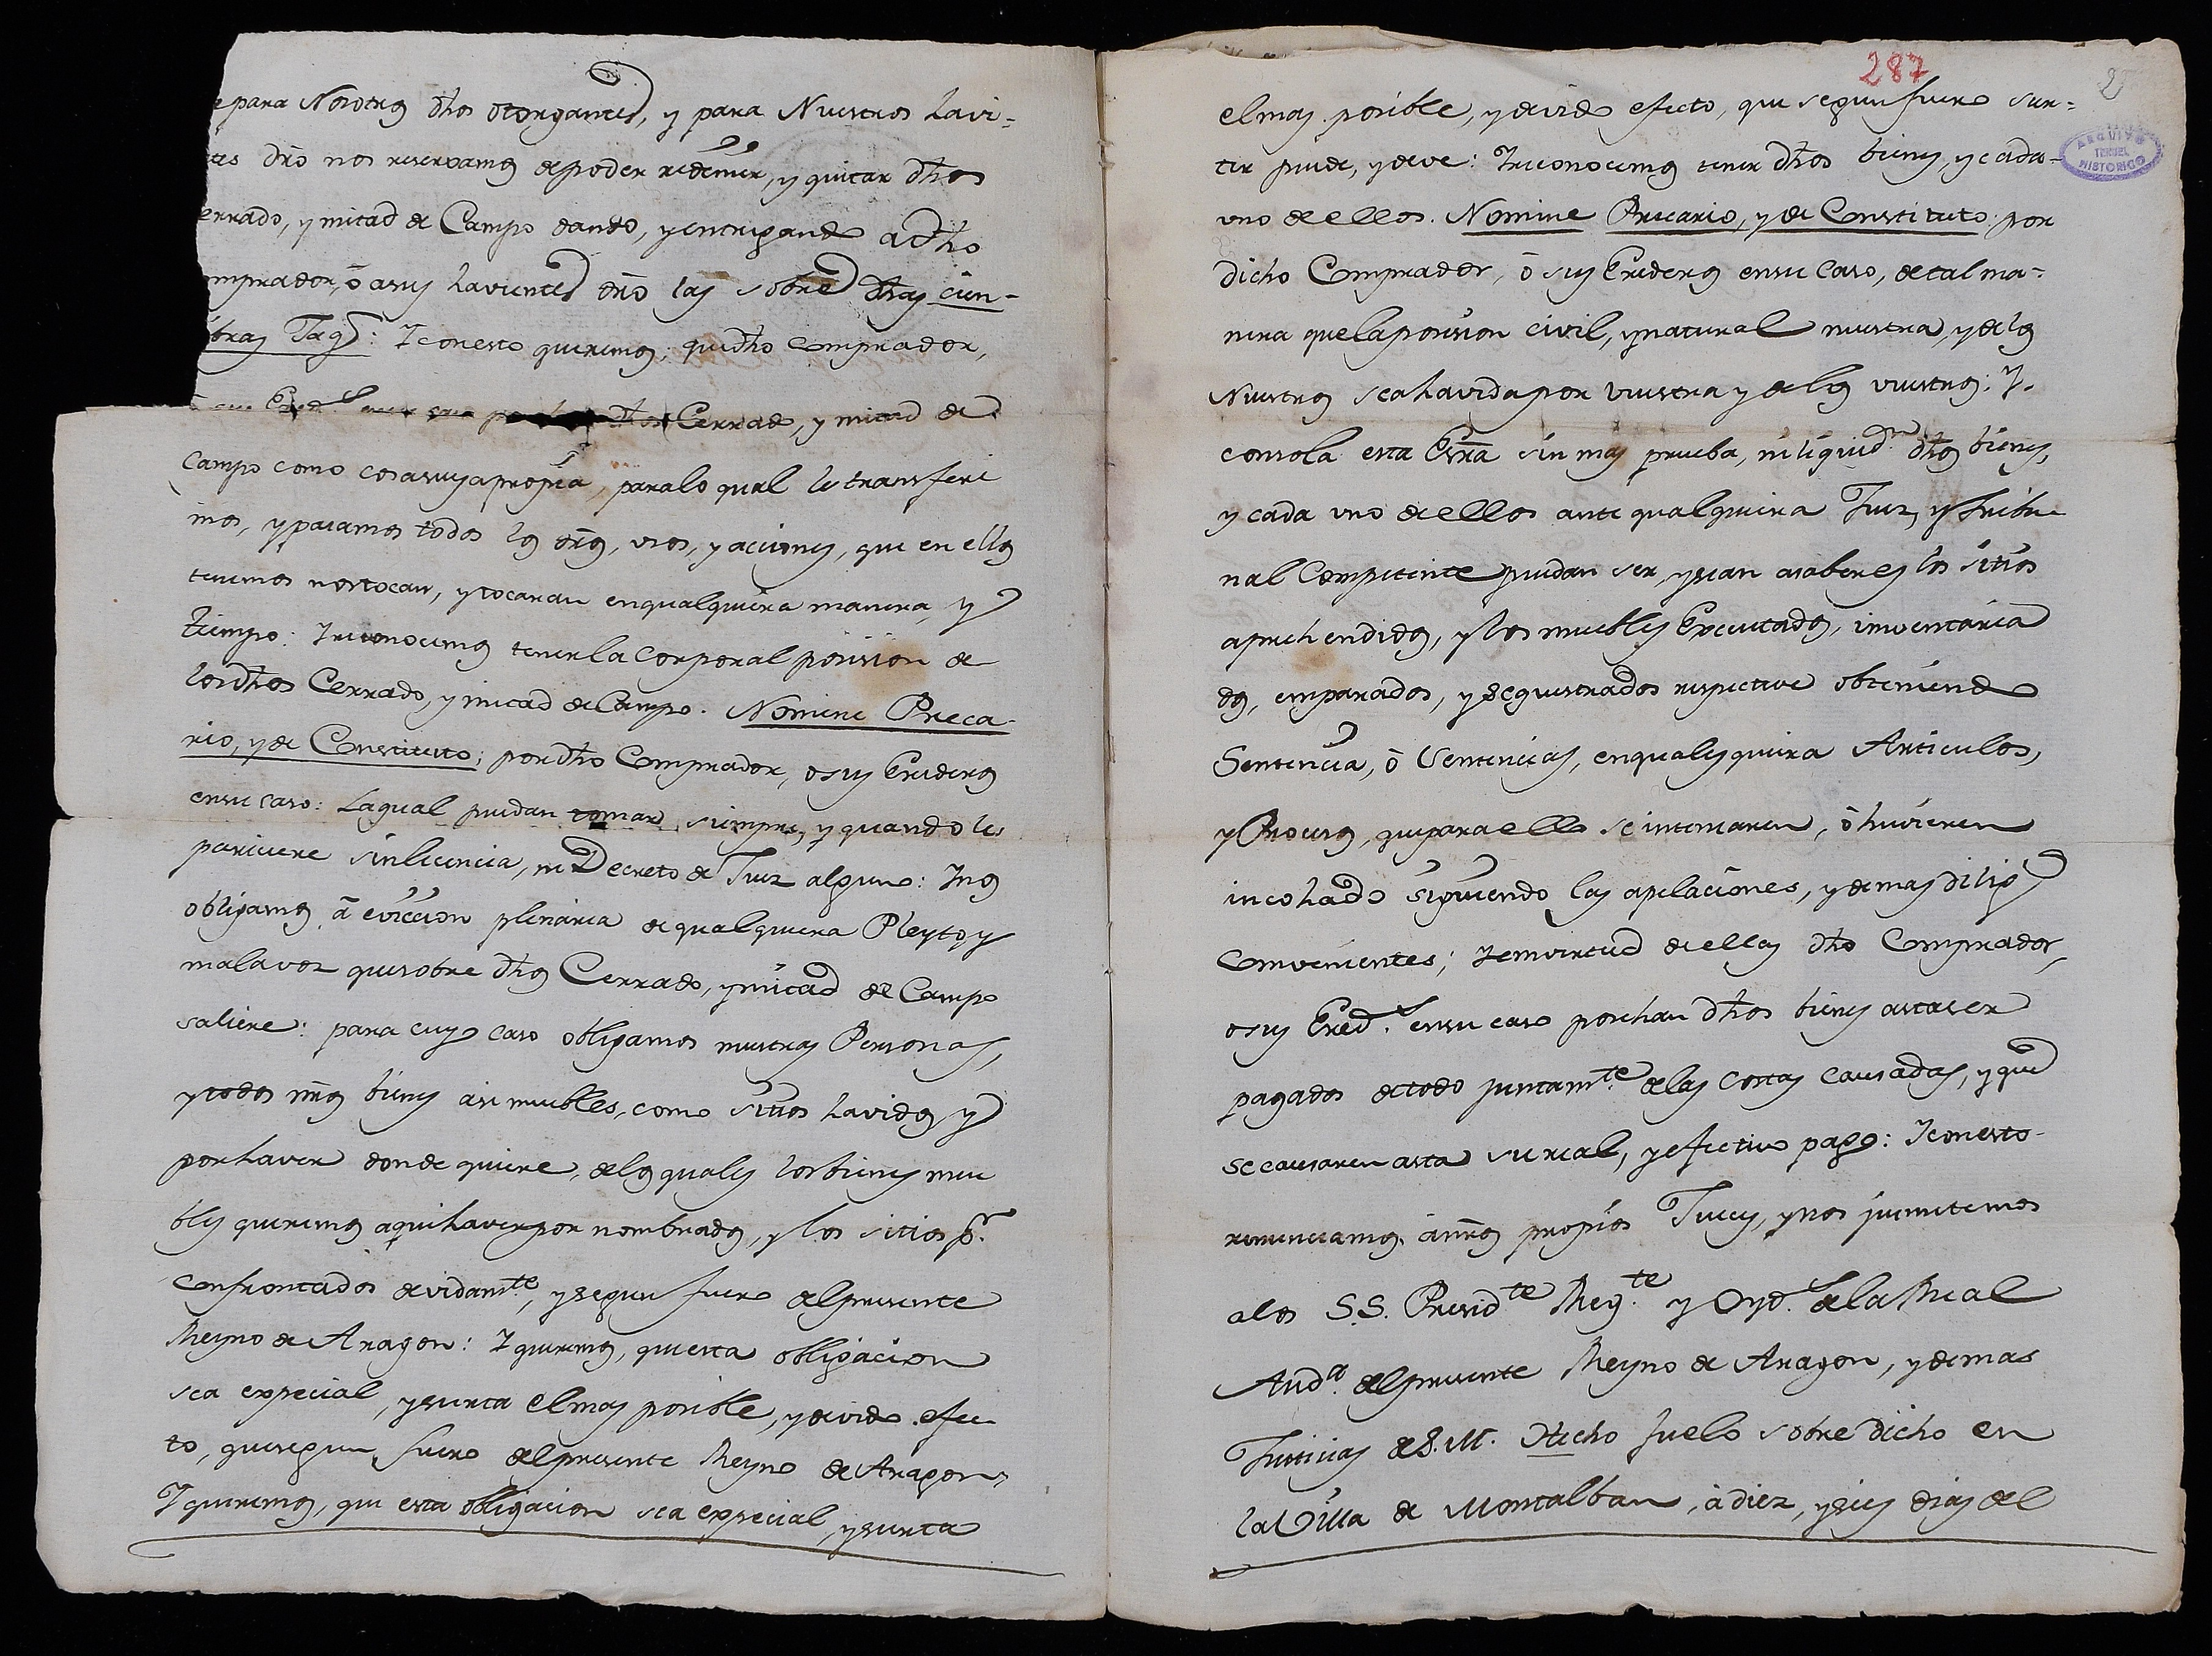 e para Nosotros dhos otorgantes, y para Nuestros havi=
tes dr̃o nos reservamos de poder redimir, y quitar dhos
errado, y mitad de Campo dando, y entregando a dho
mprador, ō a sus havientes dr̃o las sobre dhas cien-
bras Jaqs: I con esto queremos, que dho comprador,
Ered.s en su caso dhos Cerrado, y mitad de
Campo como cosa suya propia, para lo qual le transferi
mos, y pasamos todos los dr̃os, usos, y aciones, que en ellos
tenemos nos tocan, y tocaran en qualquiera manera, y
tiempo: I reconocemos tener la corporal posision de
los dhos Cerrado, y mitad de Campo. Nomine Preca-
rio, y de Constituto; por dho Comprador, o sus Erederos
en su caso: La qual puedan tomar siempre, y quando les
pariciere sin licencia, ni Decreto de Juez alguno: I nos
obligamos ā evicción plenaria de qualquiera Pleyto, y
mala voz que sobre dhos Cerrado, y mitad de Campo
saliere: para cuyo caso obligamos nuestras Personas,
y todos nr̃os bienes asi muebles, como sitios havidos y
por haver donde quiere, de los quales los bienes mue
bles queremos aqui haver por nombrados, y los sitios p.r
confrontados devidam.te, y segun fuero del presente
Reyno de Aragon: I queremos, que esta obligacion
sea expecial, y surta el mas posible, y devido efec
to, que segun fuero del presente Reyno de Aragon,
I queremos, que esta obligacion sea expecial, y surta
287
2
ARCHIVO
TERUEL
HISTORICO
el mas posible, y devido efecto, que segun fuero sur=
tir puede, y deve: I reconocemos tener dhos bienes, y cada-
uno de ellos. Nomine Precario, y de Constituto: por
dicho Comprador, ō sus Erederos en su caso, de tal ma=
nera que la posision civil, y natural nuestra, y de los
Nuestros sea havida por vuestra y de los vuestros: I.
con sola esta Esr̃a sin mas prueba, ni liquid.n dhos bienes,
y cada uno de ellos ante qualquiera Juez, y tribu
nal Competente puedan ser, y sean a saber es los sitios
aprehendidos, y los muebles Executados, inventaria
dos, emparados, y sequestrados respective obteniendo
Sentencia, ō Sentencias, en qualesquiera Articulos,
y Procesos, que para ello se intentaren, ō huvieren
incohado siguiendo las apelaciones, y demas dilig.s
convenientes; I en virtud de ellas dho Comprador,
o sus Ered.s en su caso posehan dhos bienes asta ser
pagados de todo juntam.te de las costas causadas, y que
se causaren asta su real, y efectivo pago: I con esto
renunciamos ā nr̃os propios Jueces, y nos jusmetemos
a los S.S. Presid.te Reg.te y Oyd.s de la Real
Aud.a del presente Reyno de Aragon, y demas
Justicias de S.M. Hecho fue lo sobre dicho en
la Villa de Montalban, ā diez, y seis dias del